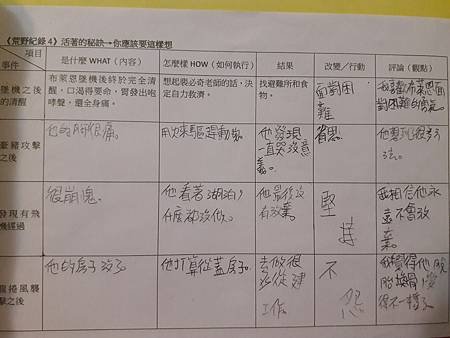 《荒野紀錄 4》活著的秘訣→你應該要這樣想
項目
事件
是什麼 WHAT（內容）
怎麼樣 HOW（如何執行）
結果
改變／行動
評論（觀點）
墜機之後
的清醒
布萊恩墜機後終於完全清
醒，口渴得要命，胃發出咆
哮聲，還全身痛。
想起裴必奇老師的話，決
定自力救濟。
找避難所和食
物。
面對困
難
豪豬攻擊
之後
他的腳很痛。
他發現
一直哭沒意
義。
省思。
發現有飛
機經過
很崩潰。
他看著湖泊，
什麼都沒做。
他最後沒
有放棄。
堅
持
我相信他永
遠不會放
棄。
龍捲風襲
擊之後
他的房子沒了
他打算從蓋房子。
去做很
工作。
不
怨
我覺得他脫
胎換骨，變
得不一樣了